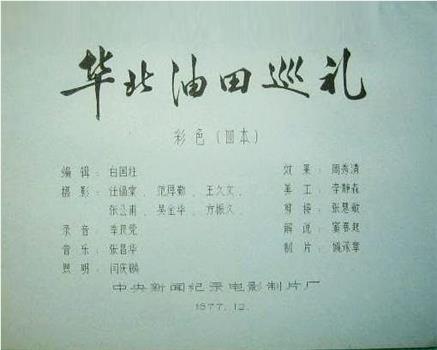 华北油田巡礼
彩色(四本)
编辑：白国柱
摄影：任锡棠、范厚勤、王久文、
张公甫、吴金华、方振久
录音：李良荣
音乐：张昌华
照明：闫庆麟
效果：周秀清
美工：李静森
剪接：张慧敏
解说：
制片：
中央新闻纪录电影制片厂
1977.12.